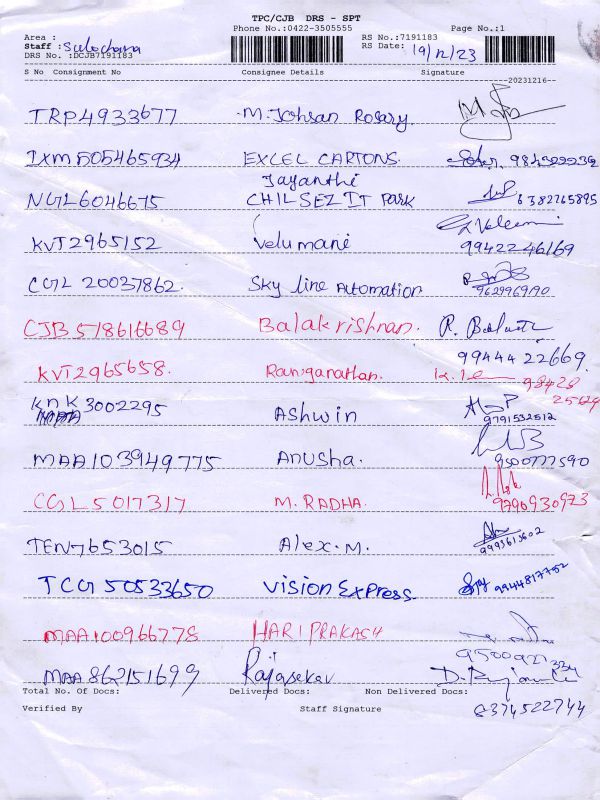 TPC/CJB DRS - SPT
Phone No.:0422-3505555 Page No.:1
Area : RS No.:7191183
Staff : Sulochana RS Date: 19/12/23
DRS No. :DCJB7191183
S No Consignment No Consignee Details Signature
20231216
TRP4933677 M. Johsan Rosary
IXM505465934 EXCEL CARTONS.
NGL6046675 Jayanthi CHIL SEZ IT Park 6382765895
KVT2965152 Velumani 9942246169
CGL 20037862. Sky line Automation 9629969190
CJB 578616689 Balakrishnan.
KVT2965658. Ranganathan. 99444 22669.
KNK3002295 Ashwin 9791532512
MAA103949775 Anusha. 9500777590
CGL5017317 M. RADHA. 9790930973
TEN7653015 Alex.M. 9993613602
TCG50533650 Vision Express 9944817752
MAA100966778 HARIPRAKASH
MAA862151699 Rajasekar
Total No. Of Docs: Delivered Docs: Non Delivered Docs:
Verified By Staff Signature 8374522744